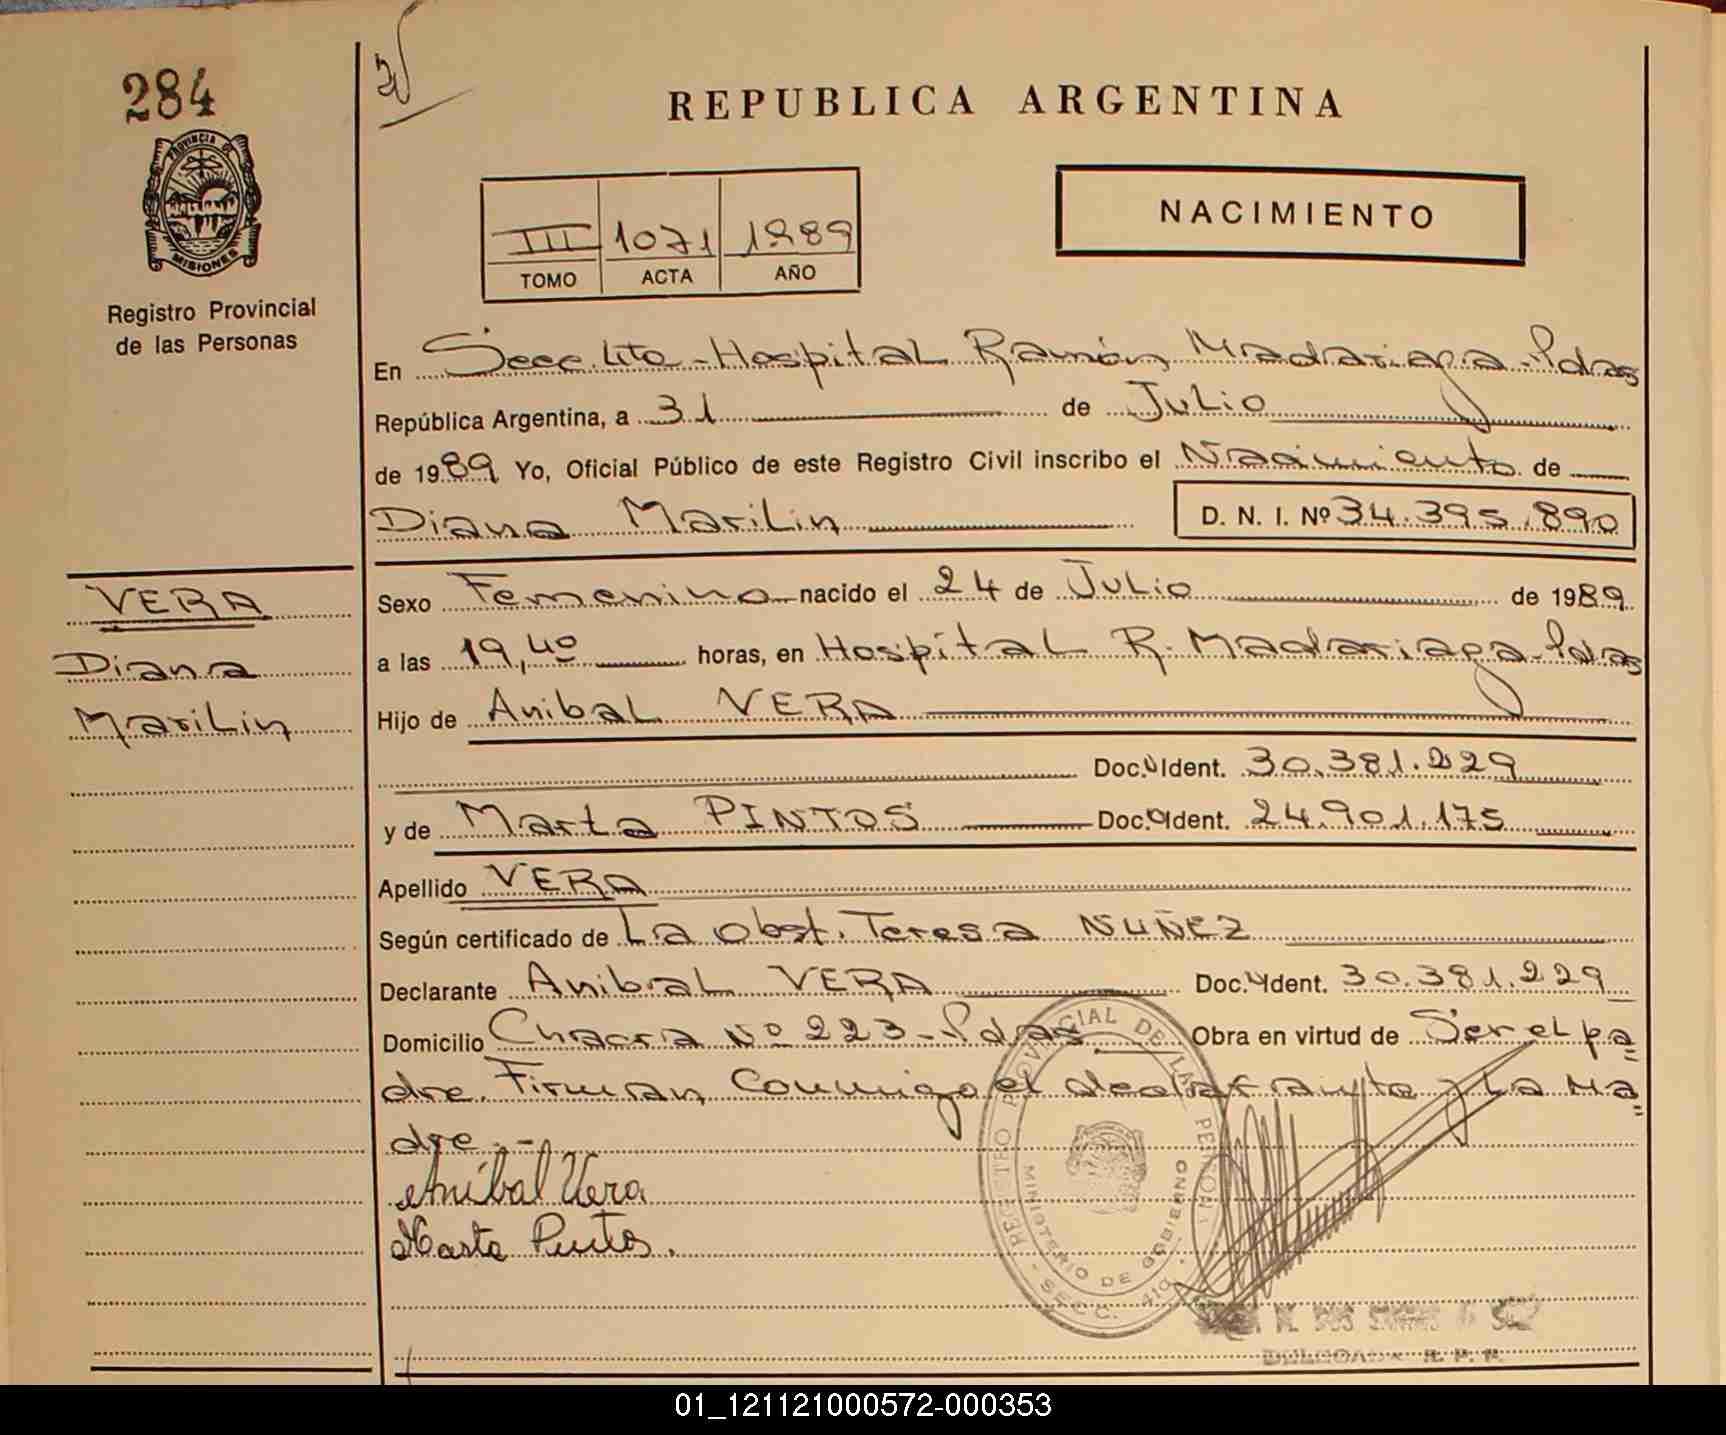 284
PROVINCIA DE
MISIONES
Registro Provincial
de las Personas
REPUBLICA ARGENTINA
III 1071 1989
TOMO ACTA AÑO
NACIMIENTO
En Secc. 4ta - Hospital Ramón Madariaga - Pdas
República Argentina, a 31 de Julio
de 1989 Yo, Oficial Público de este Registro Civil inscribo el Nacimiento de
Diana Marilin D. N. I. Nº 34.395.890
VERA
Diana
Marilin
Sexo Femenino nacido el 24 de Julio de 1989
a las 19,40 horas, en Hospital R. Madariaga - Pdas
Hijo de Anibal VERA
Doc. Ident. 30.381.229
y de Marta PINTOS Doc. Ident. 24.901.175
Apellido VERA
Según certificado de La obst. Teresa NUÑEZ
Declarante Anibal VERA Doc. Ident. 30.381.229
Domicilio Chacra Nº 223 - Pdas Obra en virtud de Ser el pa=
dre. Firman Conmigo el declarante y La Ma=
dre.-
Anibal Vera
Marta Pintos.
REGISTRO PROVINCIAL DE LAS PERSONAS
MINISTERIO DE GOBIERNO
SECC. 4ta
R. P. P.
01_121121000572-000353